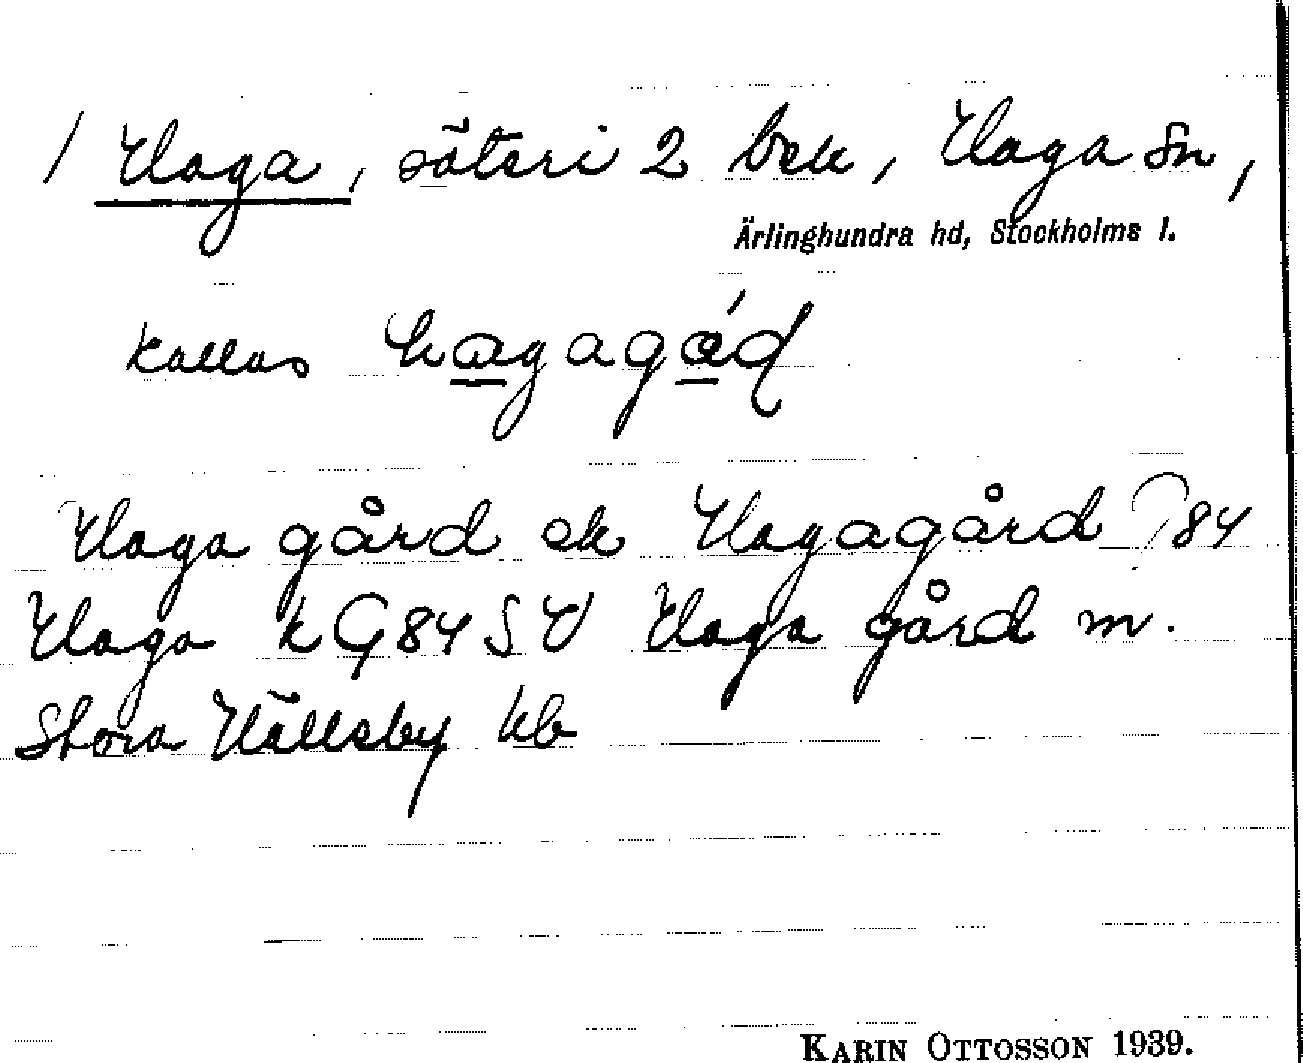 1 Haga, säteri 2 bel, Haga sn,
Ärlinghundra hd, Stockholms l.
kallas hagagád
Haga gård ek Hagagård J84
Haga k G84SV Haga gård m.
Stora Hällsby kb
KARIN OTTOSSON 1939.